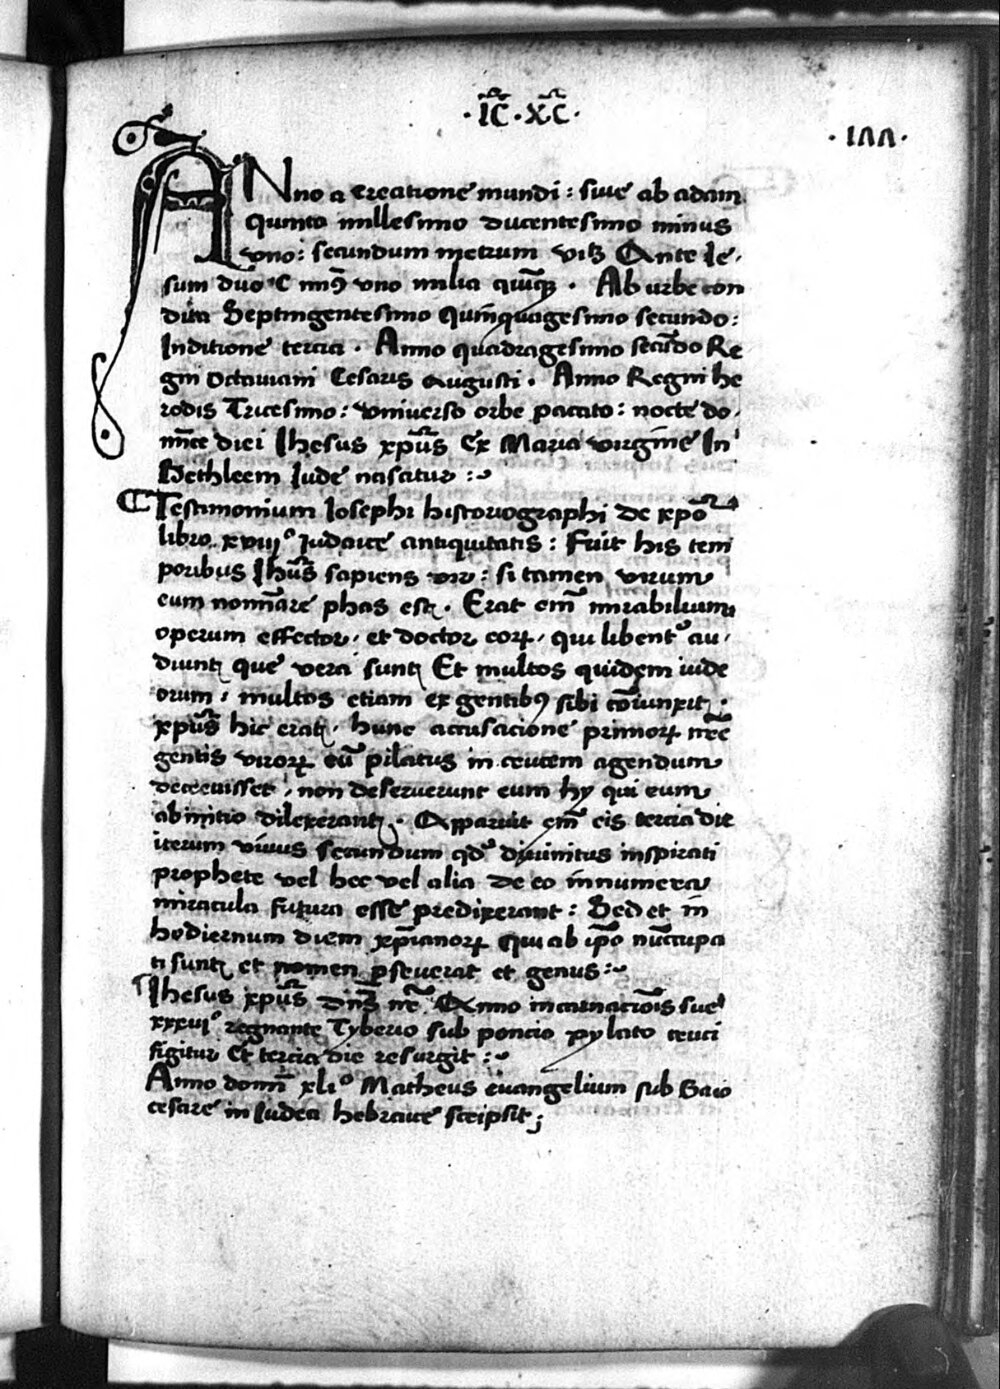 ·IC̅·XC̅·
·1ΛΛ·
ANno a creatione mundi: siue ab adam
quinto millesimo ducentesimo minus
vno: secundum metrum Ante Ie·
sum vno milia Ab urbe con
dita Septingentesimo Quinquagesimo secundo:
Inditione tercia · Anno quadragesimo secūdo Re
gni Octauiani Cesaris Augusti · Anno Regni he
rodis Tricesimo: vniuerso orbe pacato: nocte do·
mīce diei Ihesus xp̅us Ex Maria virgine In
Bethleem Iude nascitur :~
¶Testimonium Iosephi historiographi de xp̅o
libro xviijº Iudaice antiquitatis: Fuit his tem
poribus Ih̅us sapiens vir: si tamen virum
eum nomīare phas est · Erat em̅ mirabilium
operum effector· et doctor eorꝝ· qui libentᵉ au·
diunt que vera sunt Et multos quidem iude
orum: multos etiam ex gentibꝰ sibi cōiunxit·
xp̅us hic erat· hunc accusacione primorꝝ nr̅e
gentis virorꝝ cū pilatus in crucem agendum
decreuisset, non deseruerunt eum hy qui eum
ab initio dilexerant · Apparuit em̅ eis tercia die
iterum viuus secundum qd̅ diuinitus inspirati
prophete vel hec vel alia de eo innumera
miracula futura esse predixerant: Sed et in
hodiernum diem xp̅ianorꝝ qui ab ip̅o nūcupa
ti sunt et nomen ꝑseuerat et genus:~
¶Ihesus xp̅us dn̅s nr̅ Anno incarnacōis sue
xxxvjº regnante Tyberio sub poncio pylato cruci
figitur Et tercia die resurgit :~
Anno domī xliº Matheus euangelium sub Gaio
cesare in Iudea hebraice scripsit;